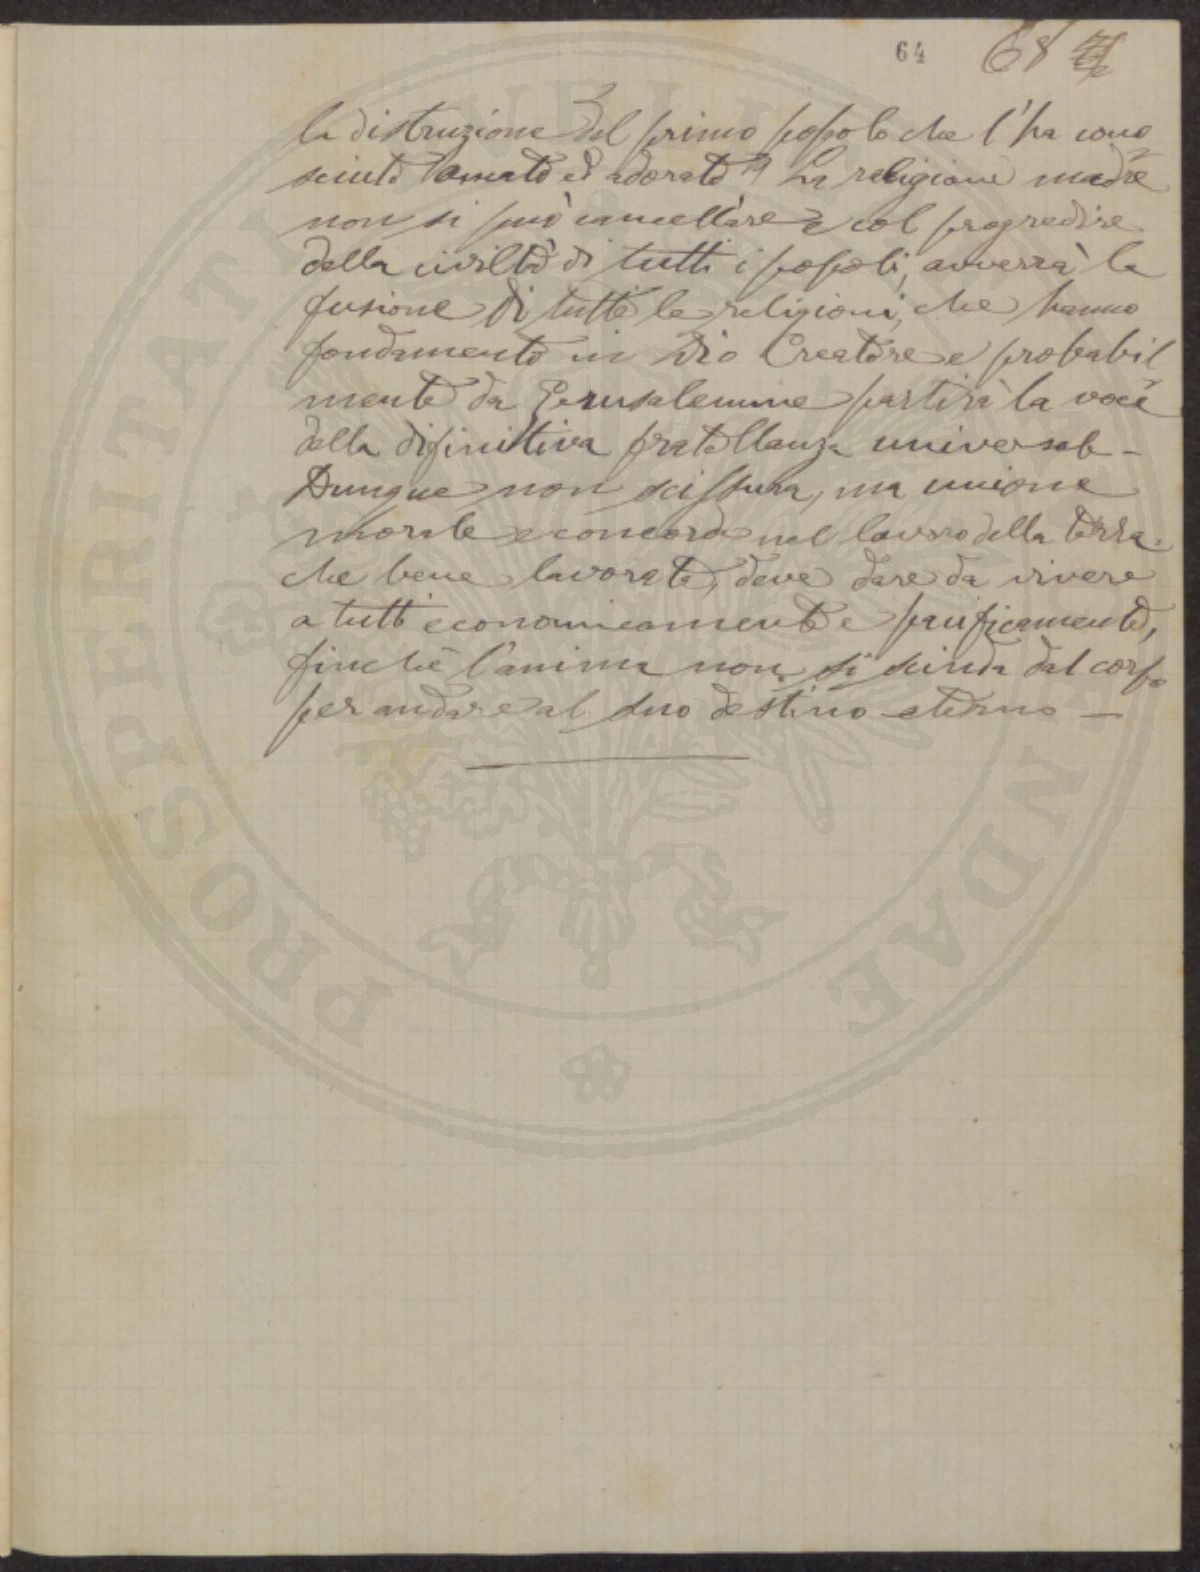 64 68
la distruzione del primo popolo che l'ha cono
sciuto amato ed adorato? La religione madre
non si può cancellare e col progredire
della civiltà di tutti i popoli, avverrà la
fusione di tutte le religioni, che hanno
fondamento in Dio Creatore e probabil
mente da Gerusalemme partirà la voce
della difinitiva fratellanza universale -
Dunque non scissura, ma unione
morale e concorde nel lavoro della terra.
che bene lavorata, deve dare da vivere
a tutti economicamente e pacificamente,
finchè l'anima non si scinda dal corpo
per andare al suo destino eterno —
PROSPERITATI VELITERNAE